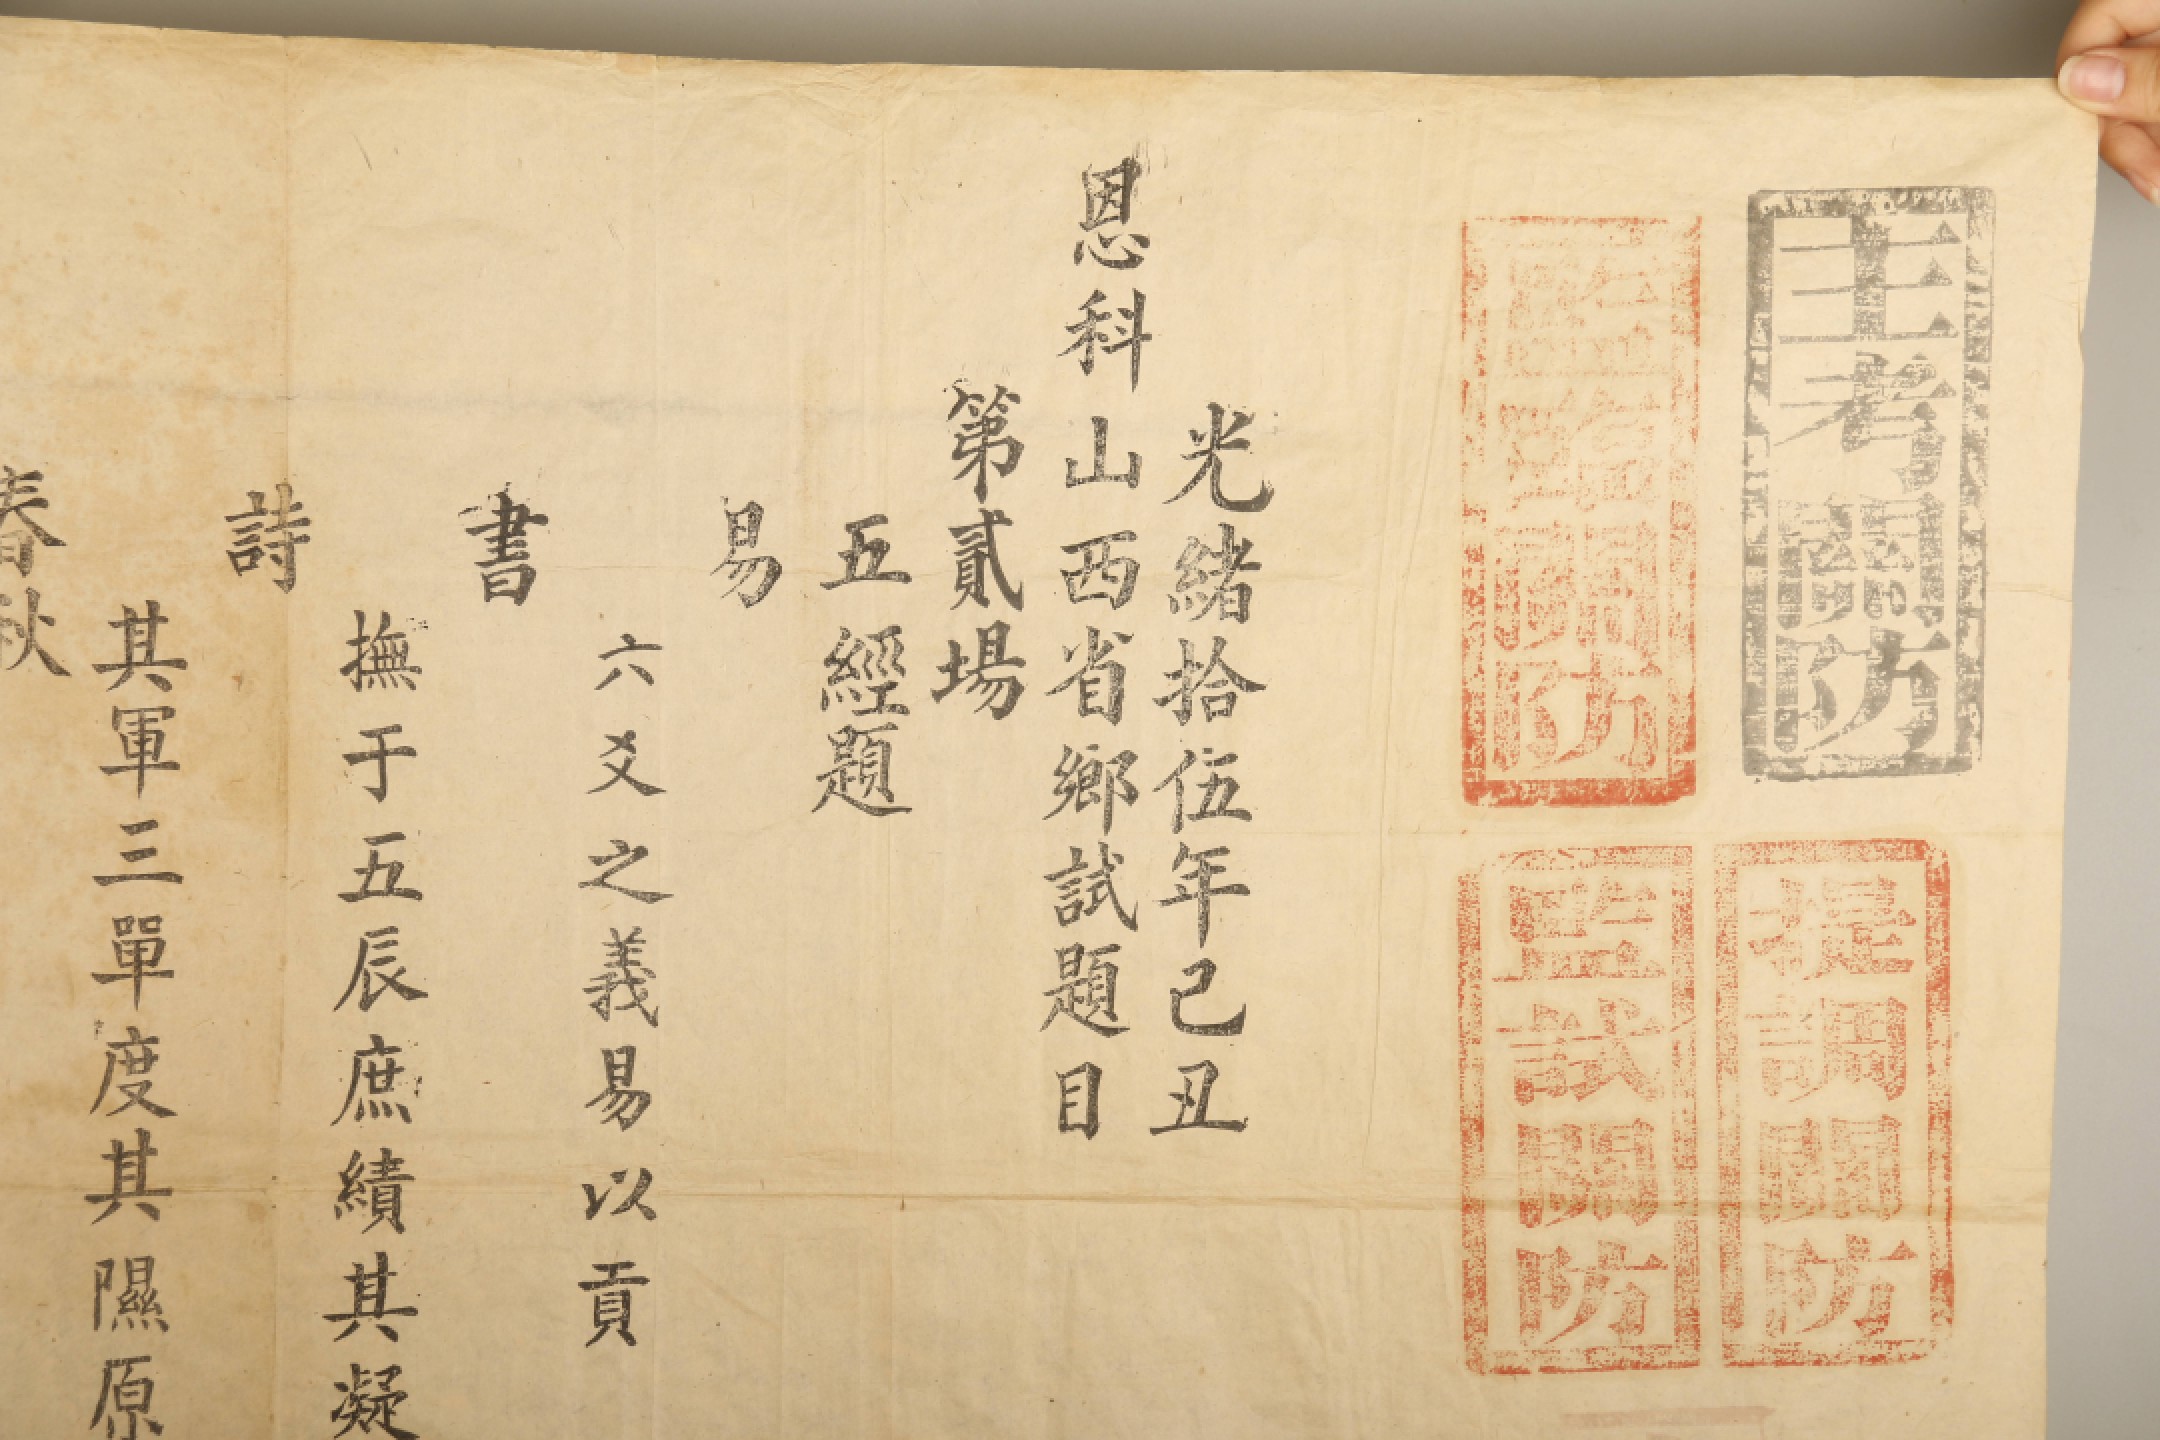 主考關防
提調關防
監臨關防
監試關防
光緒拾伍年己丑
恩科山西省鄉試題目
第貳場
五經題
易
六爻之義易以貢
書
撫于五辰庶績其凝
詩
其軍三單度其隰原
春秋